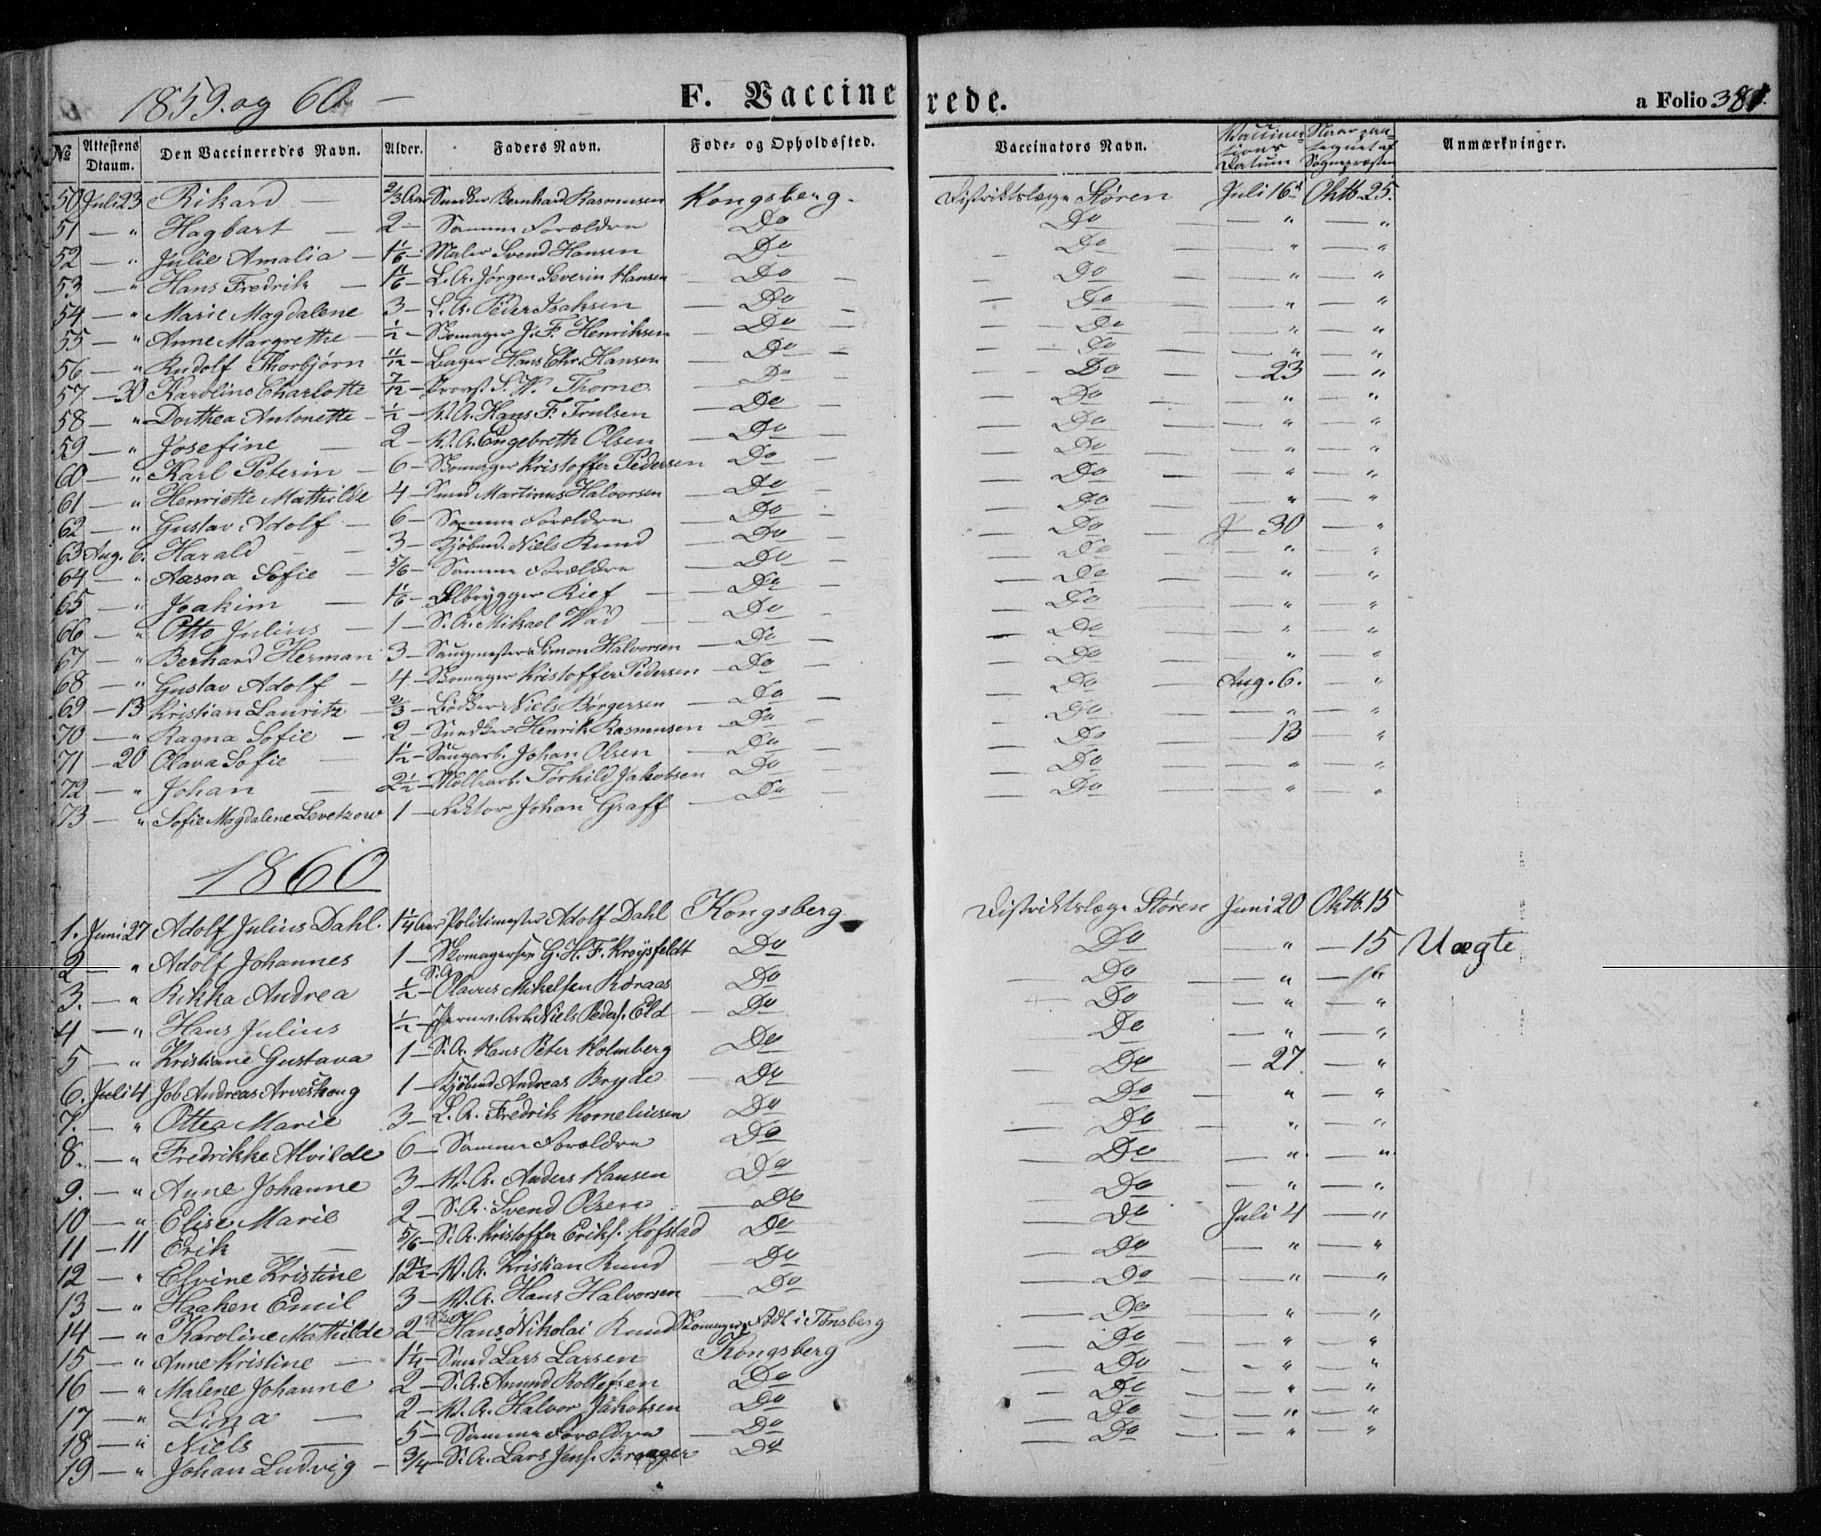 1859. og 60. — F. Vaccinerede. a Folio 381.
№ Attestens Dtaum. Den Vaccineredes Navn. Alder. Faders Navn. Føde- og Opholdssted. Vaccinators Navn. Vaccinationens Datum Naar antegnet af Sognepræsten Anmærkninger.
50 Juli 23 Rikard — 2/3 Aar Bernhard Rasmussen Kongsberg. Distriktslæge Støren Juli 16 Oktb. 25.
51 — " Hagbart — 2 — Samme Forældre Do Do — " — "
52 — " Julie Amalia — 1 1/6 — Maler Svend Hansen Do Do — " — "
53 — " Hans Fredrik — 1 1/6 — L. A. Jørgen Severin Hansen Do Do — " — "
54 — " Marie Magdalene 3 — L. A. Peder Isaksen Do Do — " — "
55 — " Anne Margrethe — 1/2 — Skomager J. F. Henriksen Do Do — " — "
56 — " Rudolf Thorbjørn 11/12 — Bager Hans Chr. Hansen Do Do — " — "
57 — 30 Karoline Charlotte 7/12 — Provst S. W. Thorne Do Do — 23 — "
58 — " Dorthea Antonette — 1/2 — V. A. Hans F. Trulsen Do Do — " — "
59 — " Josefine — 2 — V. A. Engebreth Olsen Do Do — " — "
60 — " Karl Peterin — 6 — Skomager Kristoffer Pedersen Do Do — " — "
61 — " Henriette Mathilde 4 — Smed Martinus Halvorsen Do Do — " — "
62 — " Gustav Adolf — 6 — Samme Forældre Do Do — " — "
63 Aug. 6. Harald — 3 — Kjøbmd. Niels Rund Do Do — 30 — "
64 — " Aasna Sofie — 5/6 — Samme Forældre Do Do — " — "
65 — " Joakim — 1 1/6 — Ølbrygger Kief Do Do — " — "
66 — " Otto Julius — 1 — S. A. Mikael Wad Do Do — " — "
67 — " Berhard Herman 3 — Simon Halvorsen Do Do — " — "
68 — " Gustav Adolf — 4 — Skomager Kristoffer Pedersen Do Do — " — "
69 — 13 Kristian Lauritz — 2/3 — Bødker Niels Børgersen Do Do Aug. 6. — "
70 — " Ragna Sofie — 2 — Henrik Rasmussen Do Do — " — "
71 — 20 Olava Sofie — 1 1/2 — Saugarb. Johan Olsen Do Do — 13 — "
72 — " Johan — 2 1/2 — Mollearb. Torkild Jakobsen Do Do — " — "
73 — " Sofie Magdalene Levetzow 1 — Rektor Johan Graff Do Do — " — "
1860
1. Juni 27 Adolf Julius Dahl. 1 1/4 Aar Politimester Adolf Dahl Kongsberg Distriktslæge Støren Juni 20 Oktb. 15
2 — " Adolf Johannes 1 — Skomagersv. G. H. F. Kroysfeldt Do Do — " — 15 Uægte
3. — " Rikka Andrea 1/2 — S. A. Olavus Mikelsen Røraas Do Do — " — "
4 — " Hans Julius 1/2 — Niels Peders. Eld Do Do — " — "
5 — " Kristiane Gustava 1 — S. A. Hans Peter Holmberg Do Do — " — "
6. Juli 4 Job Andreas Arveskoug 1 — Kjøbmd Andreas Bryde Do Do — 27. — "
7. — " Ottea Marie 3 — L. A. Fredrik Korneliusen Do Do — " — "
8. — " Fredrikke Alvilde 6 — Samme Forældre Do Do — " — "
9. — " Anne Johanne 3 — V. A. Anders Hansen Do Do — " — "
10 — " Elise Marie 2 — S. A. Svend Olsen Do Do — " — "
11 — 11 Erik — 5/6 — S. A. Kristoffer Eriks. Kofstad Do Do Juli 4 — "
12 — " Elvine Kristine V. A. Kristian Rund Do Do — " — "
13 — " Haaken Emil 3 — V. A. Hans Halvorsen Do Do — " — "
14 — " Karoline Mathilde 2 — Hans Nikolai Rund Skomager Født i Tønsberg Do — " — "
15 — " Anne Kristine — 1 1/4 — Smed Lars Larsen Kongsberg Do — " — "
16 — " Malene Johanne 2 — S. A. Amund Rollefsen Do Do — " — "
17 — " Lina — 2 — V. A. Halvor Jakobsen Do Do — " — "
18 — " Niels — 5 — Samme Forældre Do Do — " — "
19 — " Johan Ludvig — 3/4 — S. A. Lars Jens. Braager Do Do — " — "